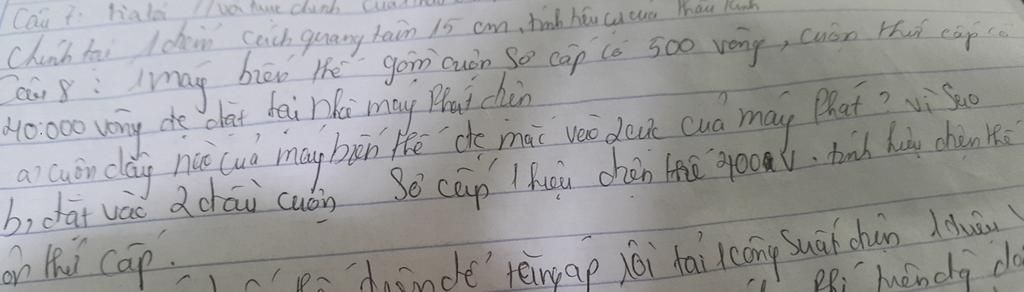 Câu 7: tia tới // với trục chính của thấu
Chính tại 1 điểm cách quang tâm 15 cm, tính tiêu cự của thấu kính
Câu 8: 1 máy biến thế gồm cuộn sơ cấp có 500 vòng, cuộn thứ cấp có
40.000 vòng đc đặt tại nhà máy phát điện
a, cuộn dây nào của máy biến thế đc mắc vào 2 cực của máy phát? vì sao
b, đặt vào 2 đầu cuộn sơ cấp 1 hiệu điện thế 400 V. tính hiệu điện thế
ơn thứ cấp.
điện để tăng áp rồi tải 1 công suất điện
phí trên dg